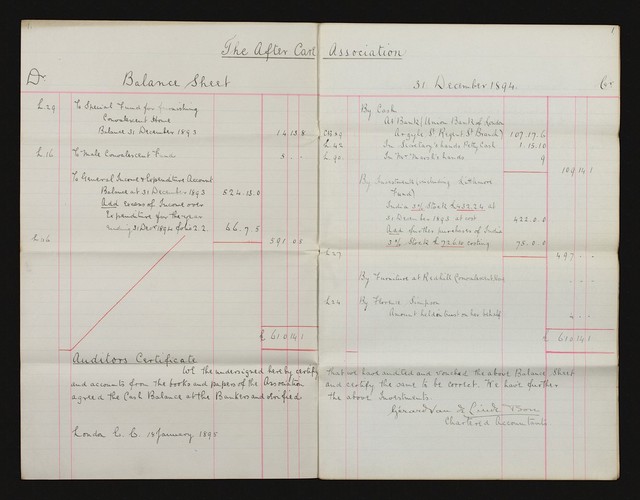 The After Care Association
Dr. Balance Sheet 31 December 1894. Cr
L.29 To Special Fund for furnishing
Convalescent Home
Balance 31 December 1893 14 13 8
L.16 To Male Convalescent Fund 5 . .
To General Income & Expenditure Account
Balance at 31 December 1893 524.13.0
Add excess of Income over
Expenditure for the year
ending 31 Decr 1894 folio 2.2. 66.7.5
591 0 5
£ 610 14 1
By Cash
At Bank (Union Bank of London
Argyle St Regent St Branch) 107.17.6
In Secretary's hands Petty Cash 1.15.10
In Mr hands 9
109 14 1
By Investments (including
Fund)
India 3% Stock £432.24 at
31 December 1893 at cost 422.0.0
Add further purchases of India
3% Stock costing 75.0.0
L.27 497 . .
By Furniture at Redhill Convalescent Home
L.24 By Florence Simpson
Amount held in trust on her behalf 4 . .
£ 610 14 1
Auditors Certificate
We the undersigned hereby certify that we have audited and vouched the above Balance Sheet
and accounts from the books and papers of the Association and certify the same to be correct. We have further
agreed the Cash Balance at the Bankers and verified the above Investments.
Chartered Accountants
London E.C. January 1895